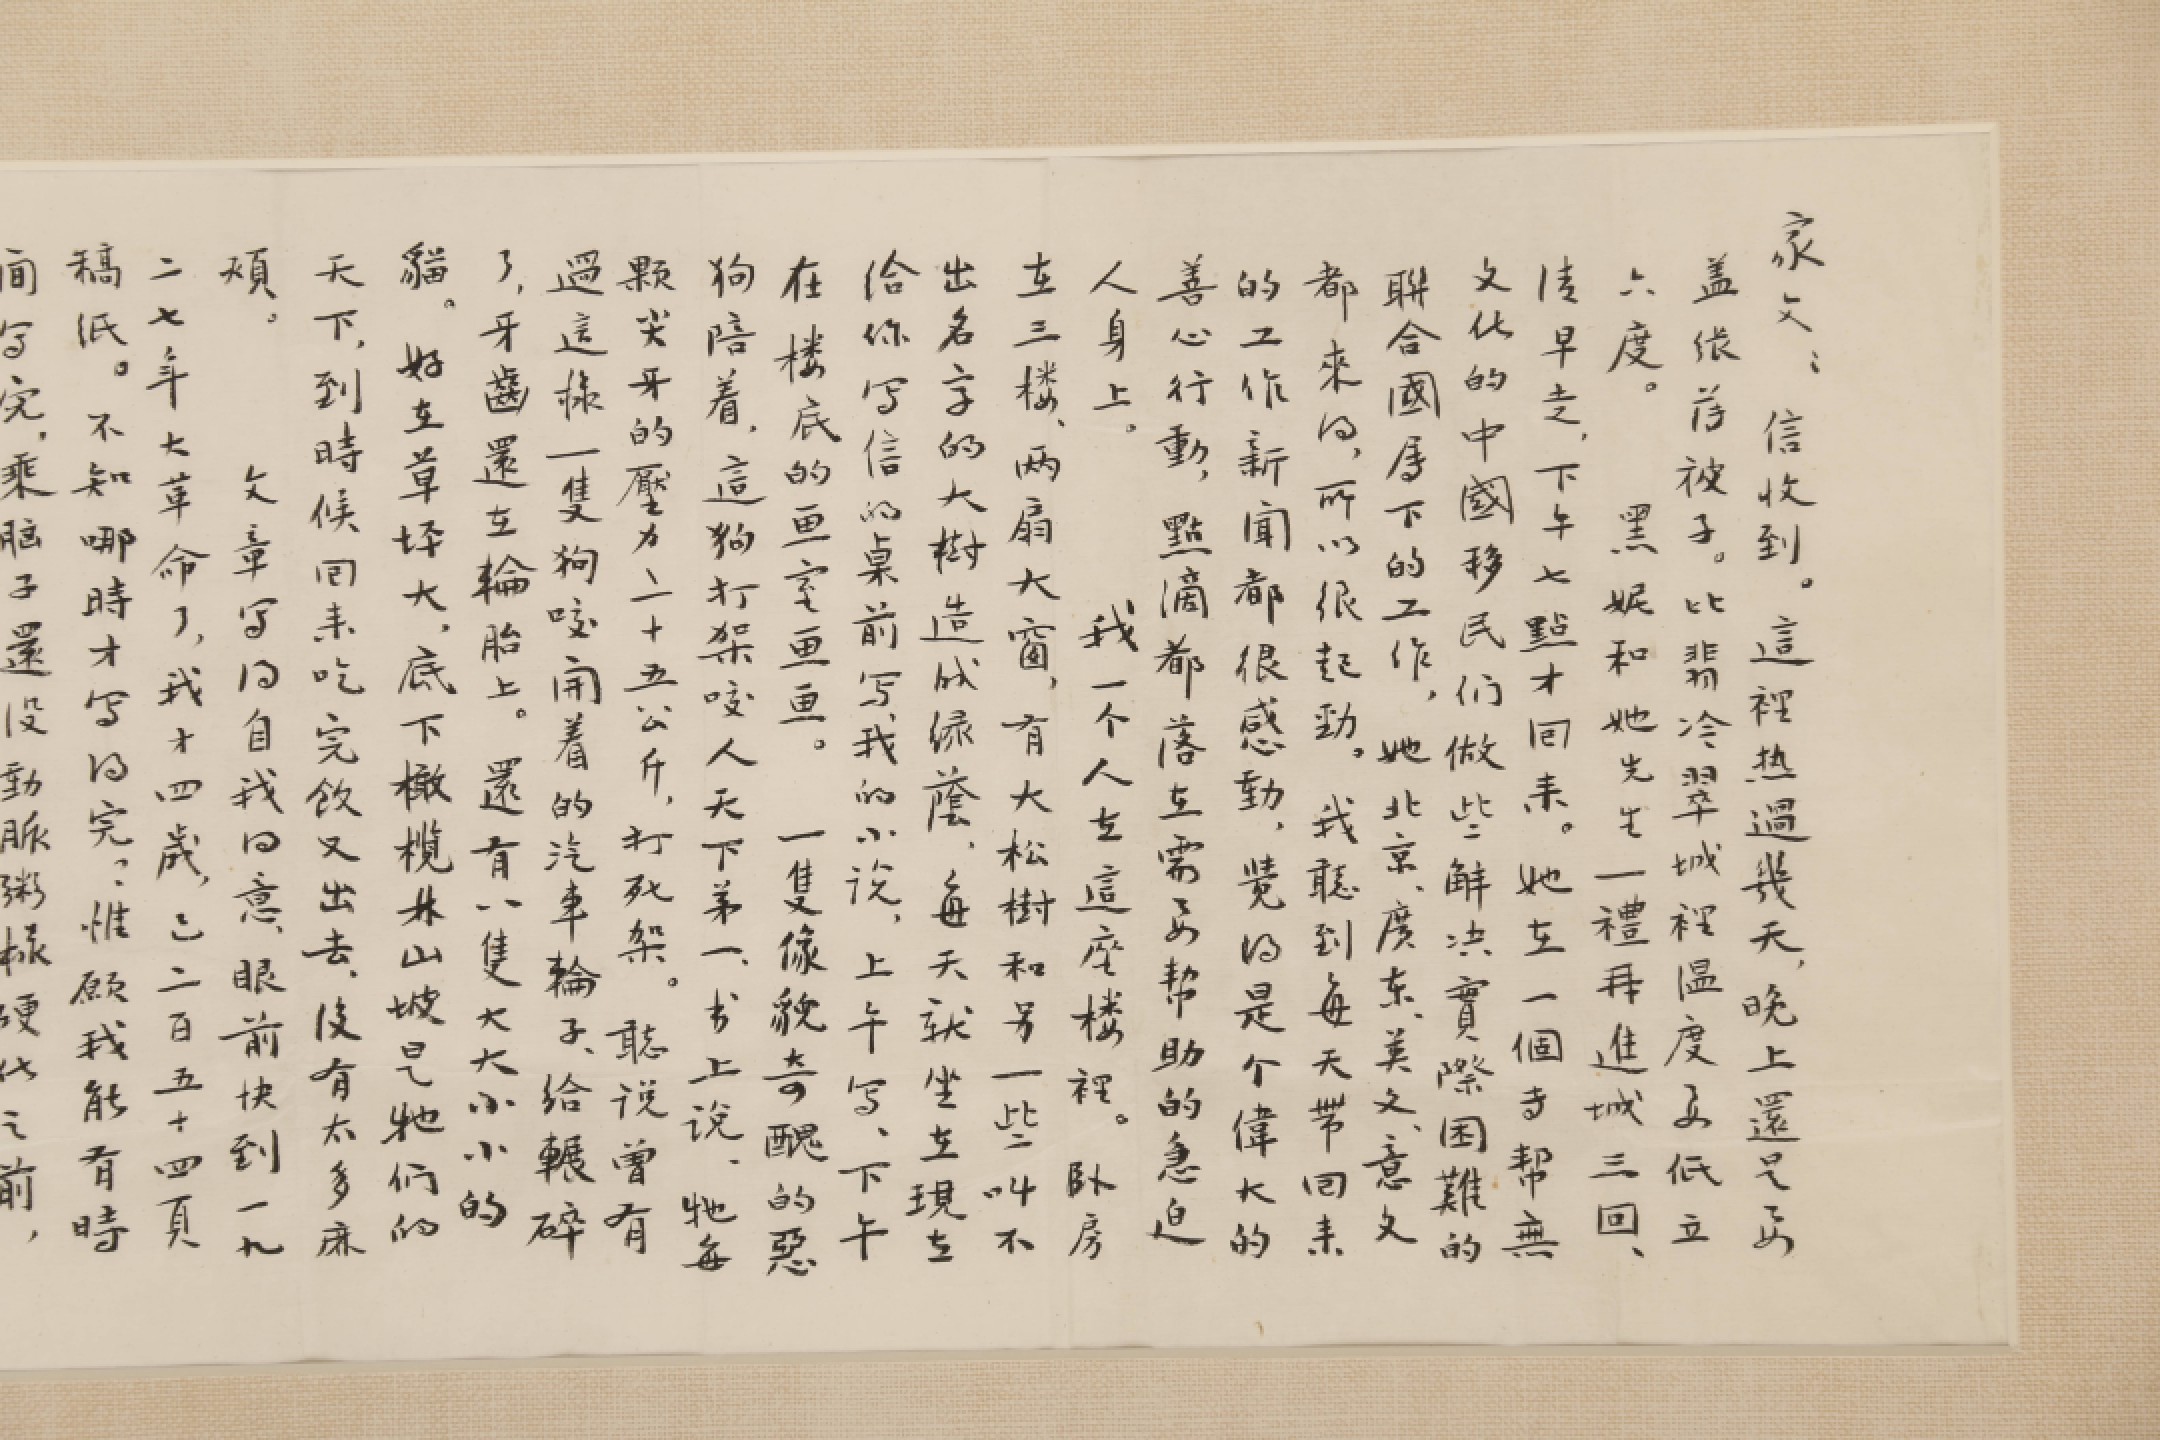 家文：信收到。這裡热過幾天，晚上還是要
盖张薄被子。比翡冷翠城裡温度要低五
六度。　黑妮和她先生一禮拜進城三回、
清早走，下午七點才回来。她在一個寺帮無
文化的中國移民们做些解决實際困難的
聯合國属下的工作，她北京、廣东、英文、意文
都來得，所以很起勁。我聽到每天带回来
的工作新聞都很感動，覺得是个偉大的
善心行動，點滴都落在需要帮助的急迫
人身上。　我一个人在這座楼裡。卧房
在三楼、两扇大窗，有大松樹和另一些叫不
出名字的大樹造成绿蔭，每天就坐在現在
给你写信的桌前写我的小说，上午写、下午
在楼底的画室画画。　一隻像貌奇醜的惡
狗陪着，這狗打架咬人天下第一、书上说、牠每
颗尖牙的壓力二十五公斤，打死架。聽说曾有
過這樣一隻狗咬開着的汽車輪子、给輾碎
了，牙齒還在輪胎上。還有八隻大大小小的
貓。好在草坪大，底下橄榄林山坡是牠们的
天下，到時候回来吃完飲又出去、没有太多麻
烦。　文章写得自我得意、眼前快到一九
二七年大革命了，我才四歲，已二百五十四頁
稿纸。不知哪時才写得完，惟願我能有時
间写完，乘脑子還没動脈粥样硬化之前，